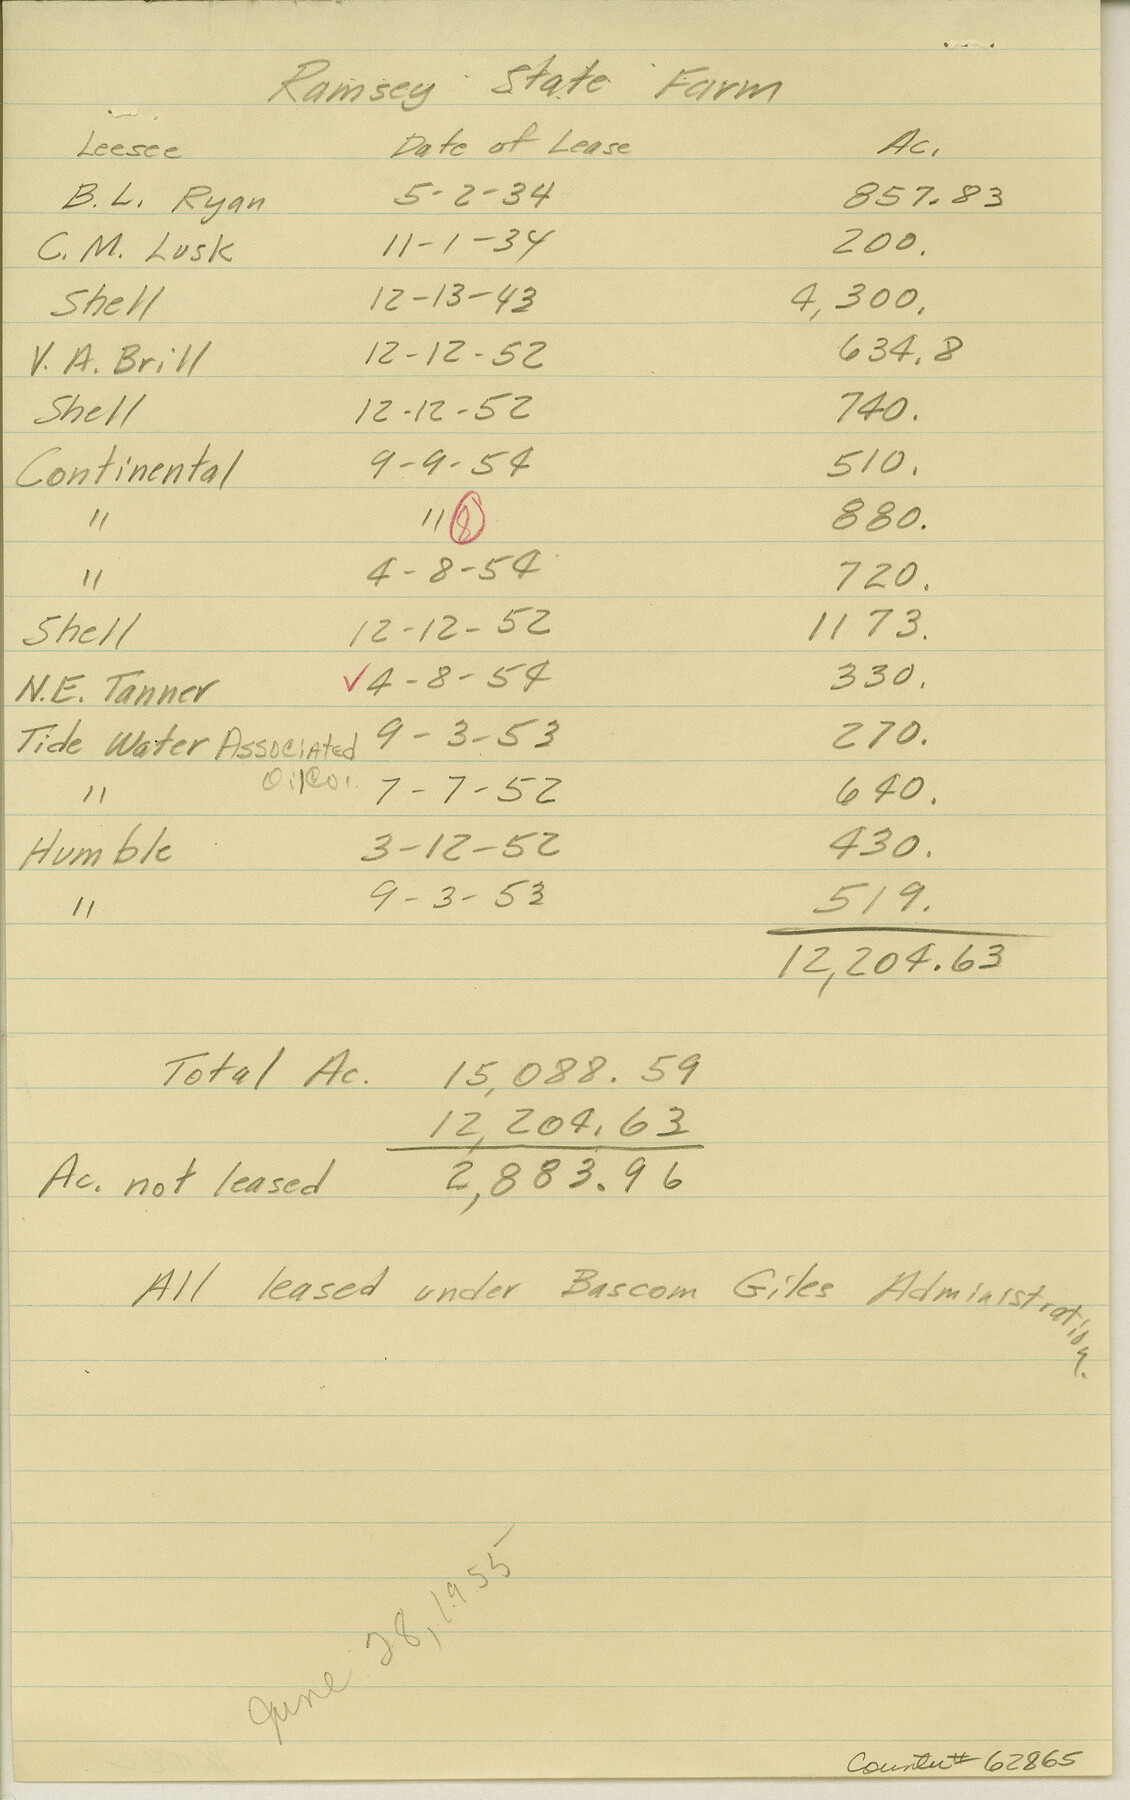 Ramsey State Farm
Leesee Date of Lease Ac.
B.L. Ryan 5-2-34 857.83
C.M. Lusk 11-1-34 200.
Shell 12-13-43 4,300.
V.A. Brill 12-12-52 634.8
Shell 12-12-52 740.
Continental 9-9-54 510.
" " 8 880.
" 4-8-54 720.
Shell 12-12-52 1173.
N.E. Tanner ✓4-8-54 330.
Tide Water Associated 9-3-53 270.
Oil Co.
" 7-7-52 640.
Humble 3-12-52 430.
" 9-3-53 519.
12,204.63
Total Ac. 15,088.59
12,204.63
Ac. not leased 2,883.96
All leased under Bascom Giles Administration.
June 28, 1955
Counter # 62865